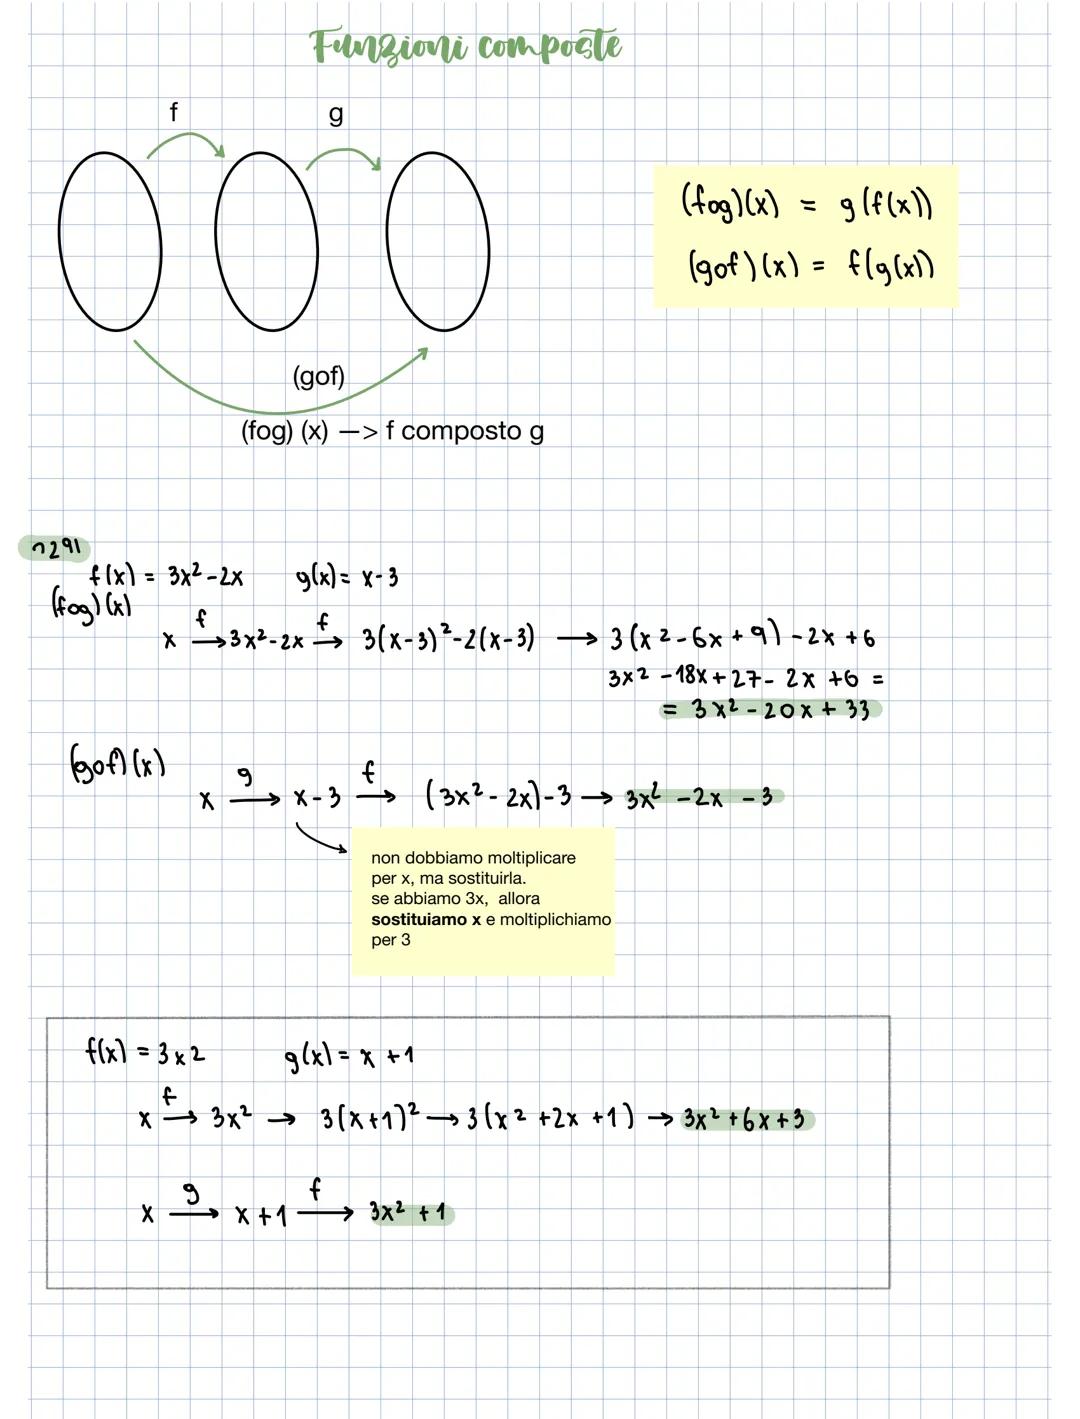 Funzioni composte
f
g
(fog)(x) = g(f(x))
(gof)(x) = f(g(x))
(gof)
(fog) (x) —> f composto g
n291
f(x) = 3x²-2x g(x) = x-3
(fog)(x)
x f→ 3x²-2x f→ 3(x-3)²-2(x-3) → 3(x²-6x+9)-2x+6
3x²-18x+27-2x+6 =
= 3x²-20x+33
(gof)(x)
x g→ x-3 f→ (3x²-2x)-3 → 3x²-2x-3
non dobbiamo moltiplicare
per x, ma sostituirla.
se abbiamo 3x, allora
sostituiamo x e moltiplichiamo
per 3
f(x) = 3x2 g(x) = x+1
x f→ 3x² → 3(x+1)² → 3(x²+2x+1) → 3x²+6x+3
x g→ x+1 f→ 3x²+1